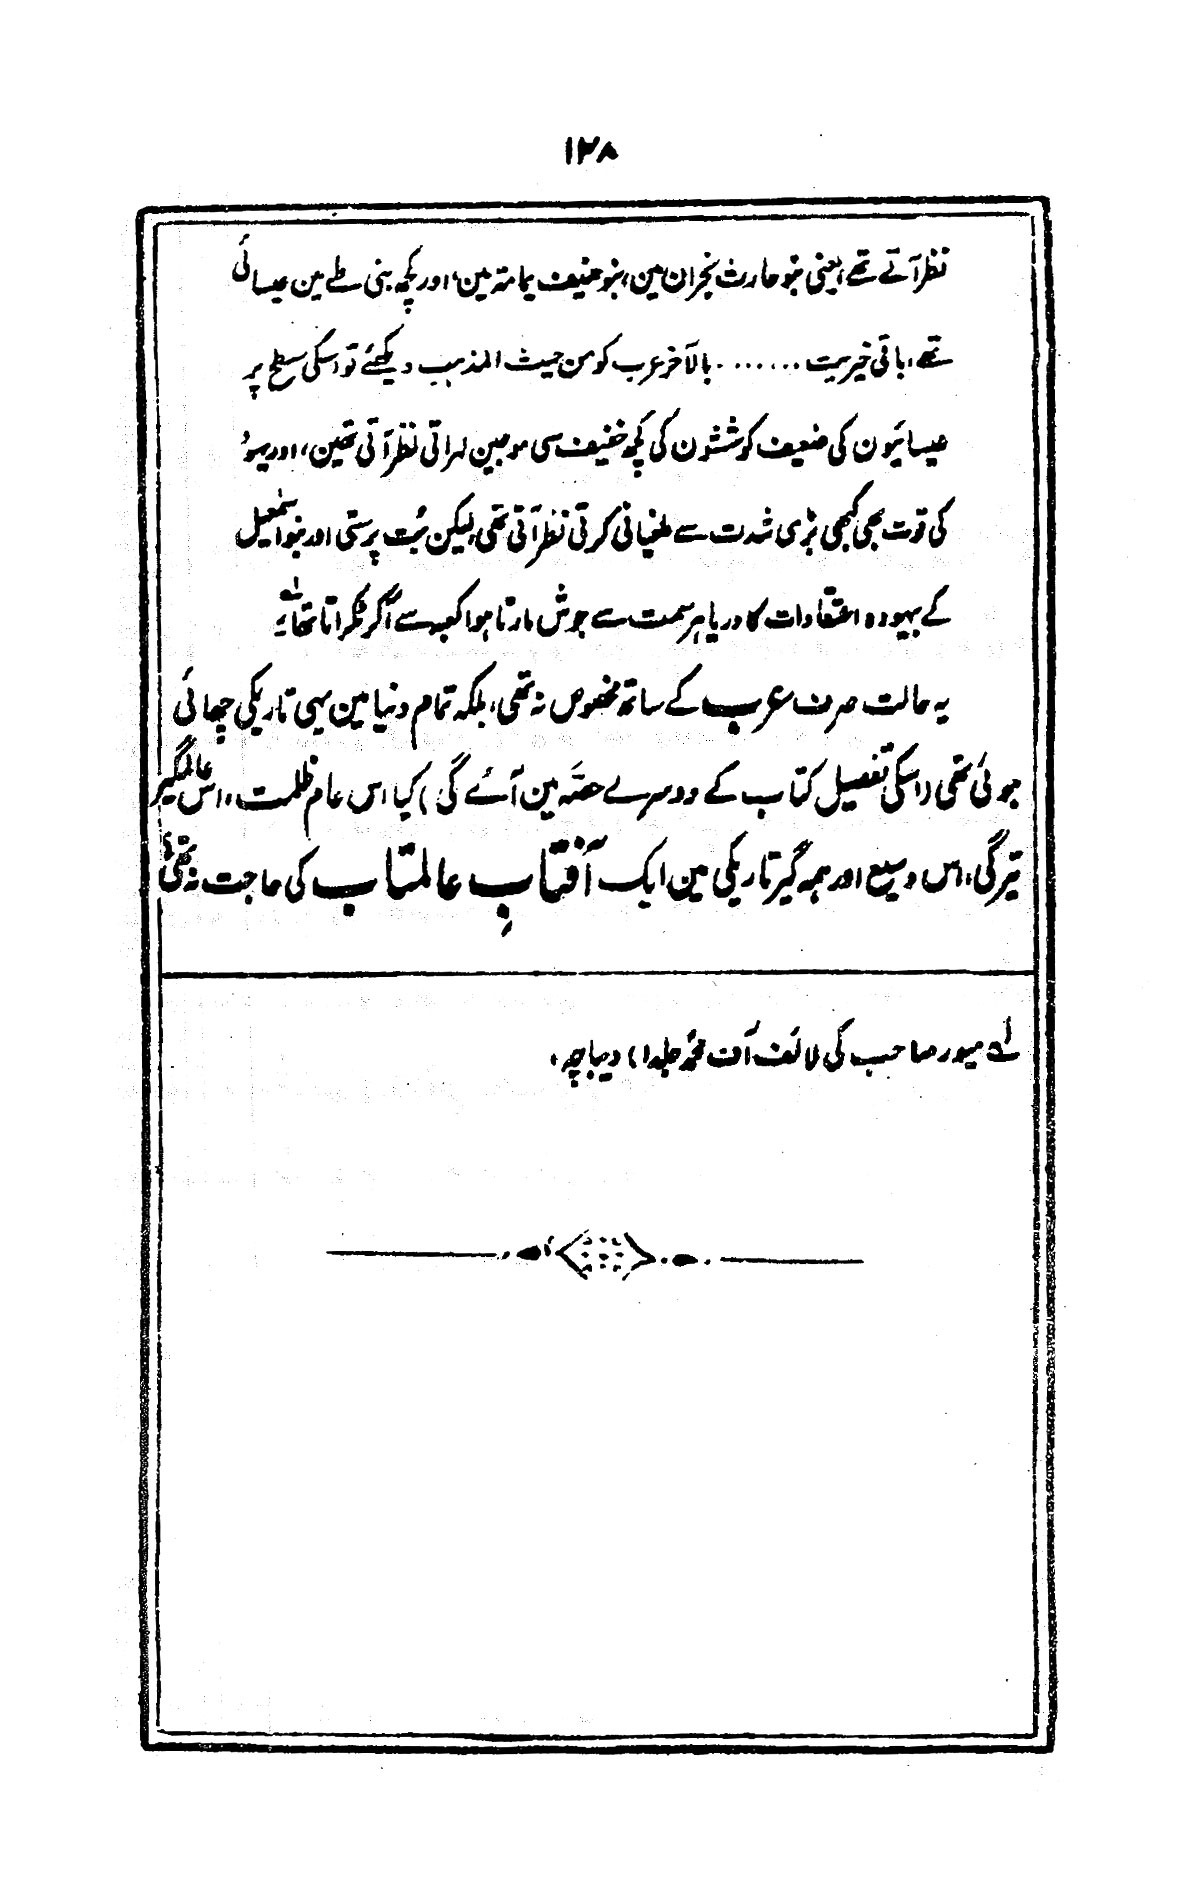 ۱۲۸
نظر آتے تھے، یعنی بنو حارث نجران مین، بنو حنیف یمامہ مین، اور کچھ بنی طے مین عیسائی
تھے، باقی خیریت ........ بالآخر عرب کو من حیث المذہب دیکھئے تو اسکی سطح پر
عیسائیون کی ضعیف کوششون کی کچھ خفیف سی موجین لہراتی نظر آتی تھین، اور یہود
کی قوت بھی کبھی بڑی شدت سے طغیانی کرتی نظر آتی تھی، لیکن بُت پرستی اور بنو اسمٰعیل
کے بیہودہ اعتقادات کا دریا ہر سمت سے جوش مارتا ہوا کعبہ سے آکر ٹکراتا تھا لہ
یہ حالت صرف عرب کے ساتھ مخصوص نہ تھی، بلکہ تمام دنیا مین یہی تاریکی چھائی
ہوئی تھی (اسکی تفصیل کتاب کے دوسرے حصّہ مین آئے گی) کیا اس عام ظلمت، اس عالمگیر
تیرگی، اس وسیع اور ہمہ گیر تاریکی مین ایک آفتابِ عالمتاب کی حاجت نہ تھی؟
لہ میور صاحب کی لائف آف محمدؐ جلد ۱) دیباچہ،